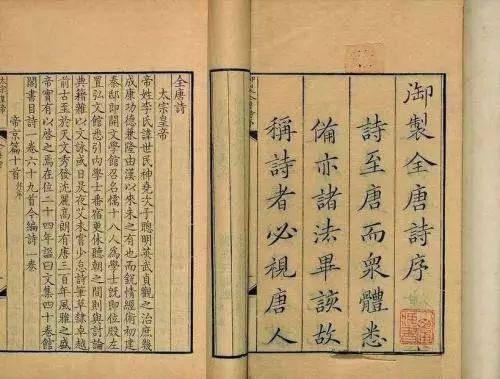 御製全唐詩序
詩至唐而衆體悉
備亦諸法畢該故
稱詩者必視唐人
全唐詩
太宗皇帝
帝姓李氏諱世民神堯次子聰明英武貞觀之治庶幾
成康功德兼隆由漢以來未之有也而銳情經術初建
秦邸即開文學館召名儒十八人為學士既即位殿左
置弘文館悉引內學士番宿更休聽朝之間則與討論
典籍雜以文詠或日昃夜艾未嘗少怠詩筆草隸卓越
前古至於天文秀發沈麗高朗有唐三百年風雅之盛
帝實有以啓之焉在位二十四年謚曰文集四十卷館
閣書目詩一卷六十九首今編詩一卷
帝京篇十首并序
太宗皇帝